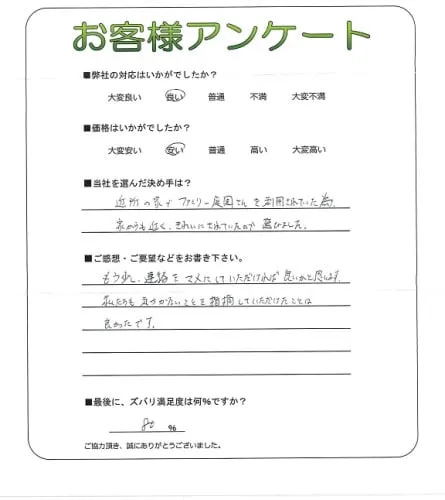 お客様アンケート
■弊社の対応はいかがでしたか？
大変良い 良い 普通 不満 大変不満
■価格はいかがでしたか？
大変安い 安い 普通 高い 大変高い
■当社を選んだ決め手は？
近所の家がファミリー庭園さんを利用されていた為、
家からも近く、きれいにされていたので選びました。
■ご感想・ご要望などをお書き下さい。
もう少し、連絡をマメにしていただければ良いかと思います。
私たちも気づかないことを指摘していただけたことは
良かったです。
■最後に、ズバリ満足度は何%ですか？
80 %
ご協力頂き、誠にありがとうございました。